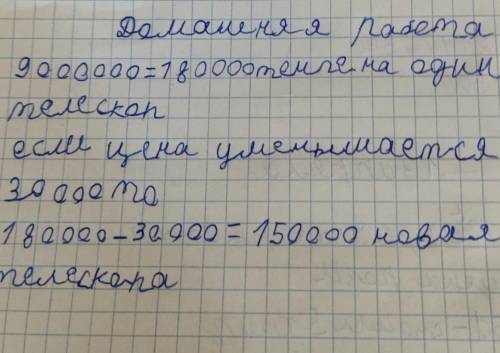 Домашняя работа
9000000=180000тенге на один
телескоп
если цена уменьшается
30000 то
180000-30000=150000 новая
телескопа